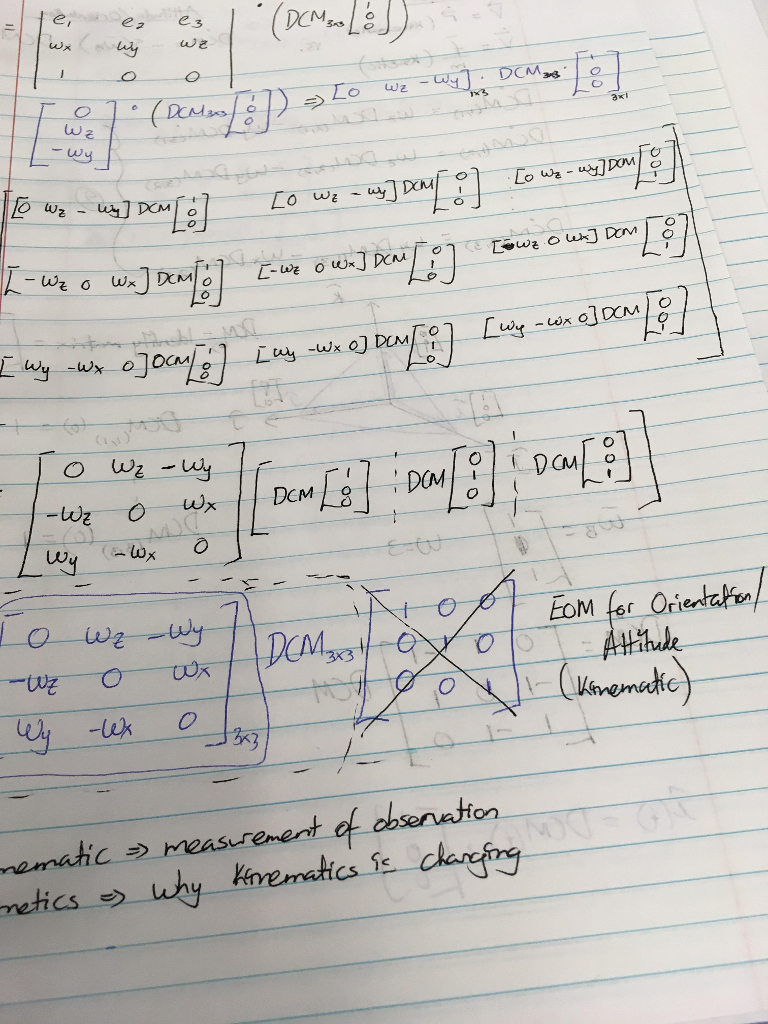 = | e₁ e₂ e₃ | · (DCM₃ₓ₃ [1 0 0])
| wx wy wz |
| 1 0 0 |
[0 wz -wy] · (DCM₃ₓ₃ [1 0 0]) ⇒ [0 wz -wy]₁ₓ₃ · DCM₃ₓ₃ · [1 0 0]₃ₓ₁
[0 wz -wy] DCM [1 0 0] [0 wz -wy] DCM [0 1 0] [0 wz -wy] DCM [0 0 1]
[-wz 0 wx] DCM [1 0 0] [-wz 0 wx] DCM [0 1 0] [-wz 0 wx] DCM [0 0 1]
[wy -wx 0] DCM [1 0 0] [wy -wx 0] DCM [0 1 0] [wy -wx 0] DCM [0 0 1]
[0 wz -wy] [DCM [1 0 0] DCM [0 1 0] DCM [0 0 1]]
[-wz 0 wx]
[wy -wx 0]
[0 wz -wy] DCM₃ₓ₃ [1 0 0] EOM for Orientation/
[-wz 0 wx] [0 1 0] Attitude
[wy -wx 0]₃ₓ₃ [0 0 1] (Kinematic)
nematic ⇒ measurement of observation
netics ⇒ why kinematics is changing